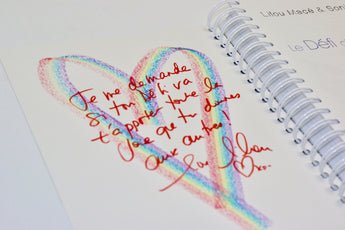 Lilou Macé & Son
Le Défi d
Je me demande
si ton défi va
t'apporter toute la
joie que tu donnes
aux autres!
Love Lilou
xo.